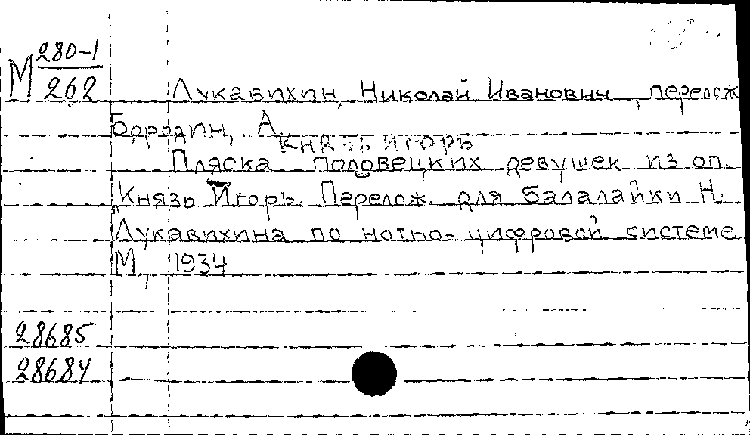 М 280-1
262
Лукавихин, Николай Иванович, перелож.
Бородин, А.
КНЯЗЬ ИГОРЬ
Пляска половецких девушек из оп.
Князь Игорь. Перелож. для балалайки Н.
Лукавихина по нотно-цифровой системе
М., 1934
28685
28684